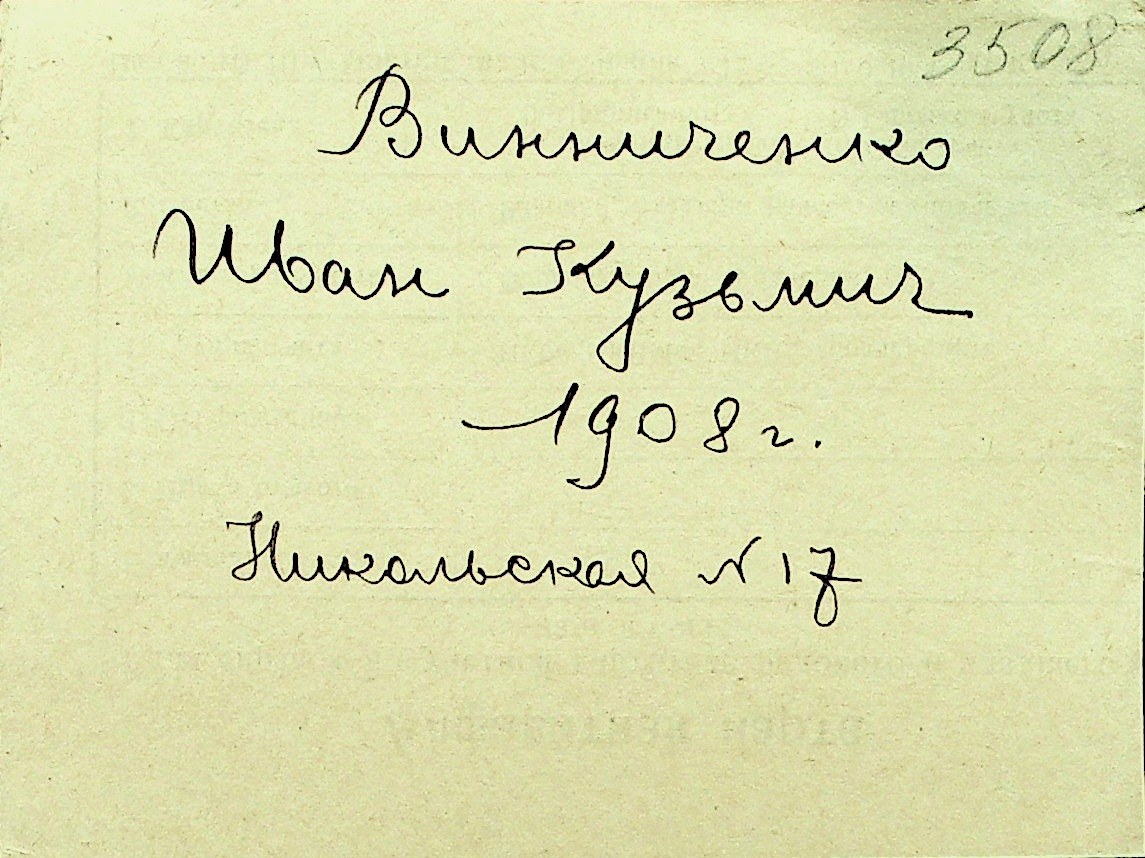 3508
Винниченко
Иван Кузьмич
1908 г.
Никольская N 17